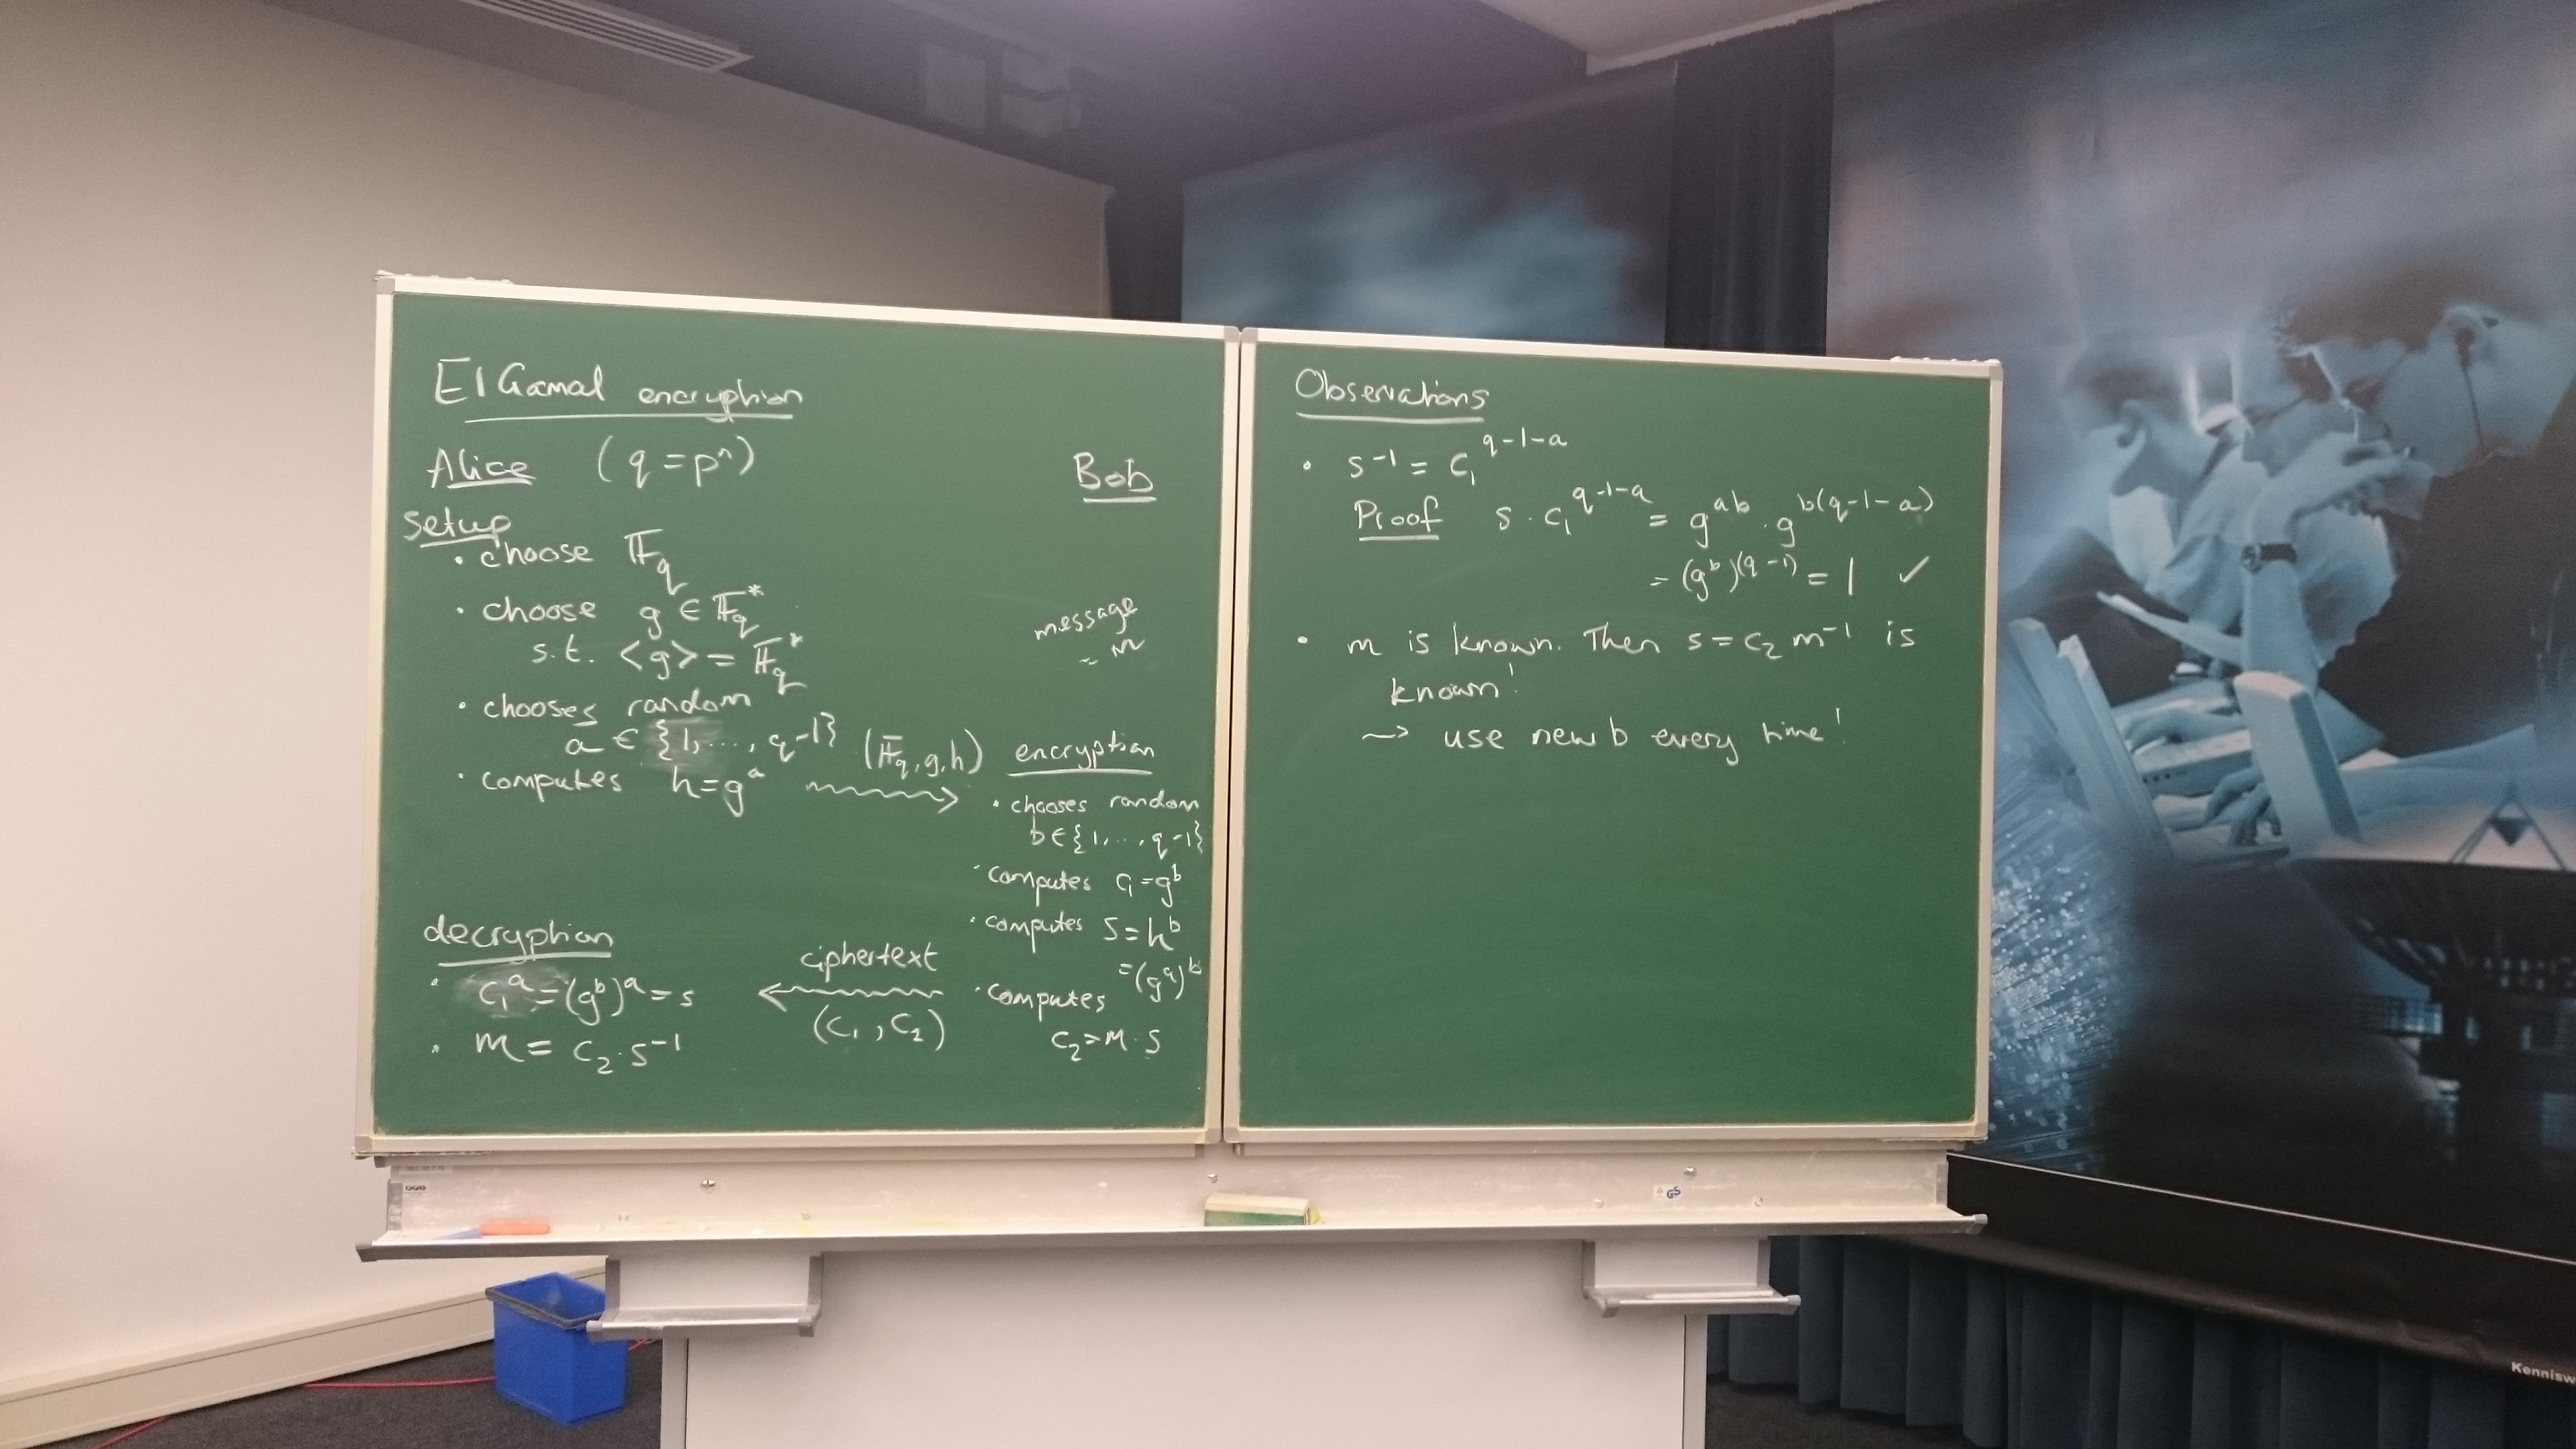 ElGamal encryption
Alice (q = pⁿ)
Bob
setup
• choose 𝔽_q
• choose g ∈ 𝔽_q*
s.t. <g> = 𝔽_q*
message
= m
• chooses random
a ∈ {1, ..., q-1}
• computes h = g^a
(𝔽_q, g, h)
encryption
• chooses random
b ∈ {1, ..., q-1}
• computes c₁ = g^b
• computes s = h^b
= (g^a)^b
• computes
c₂ = m · s
ciphertext
(c₁, c₂)
decryption
• c₁^a = (g^b)^a = s
• m = c₂ · s⁻¹
Observations
• s⁻¹ = c₁^(q-1-a)
Proof s · c₁^(q-1-a) = g^(ab) · g^(b(q-1-a))
= (g^b)^(q-1) = 1 ✓
• m is known. Then s = c₂ m⁻¹ is
known!
⇝ use new b every time!
GS
Kennisw